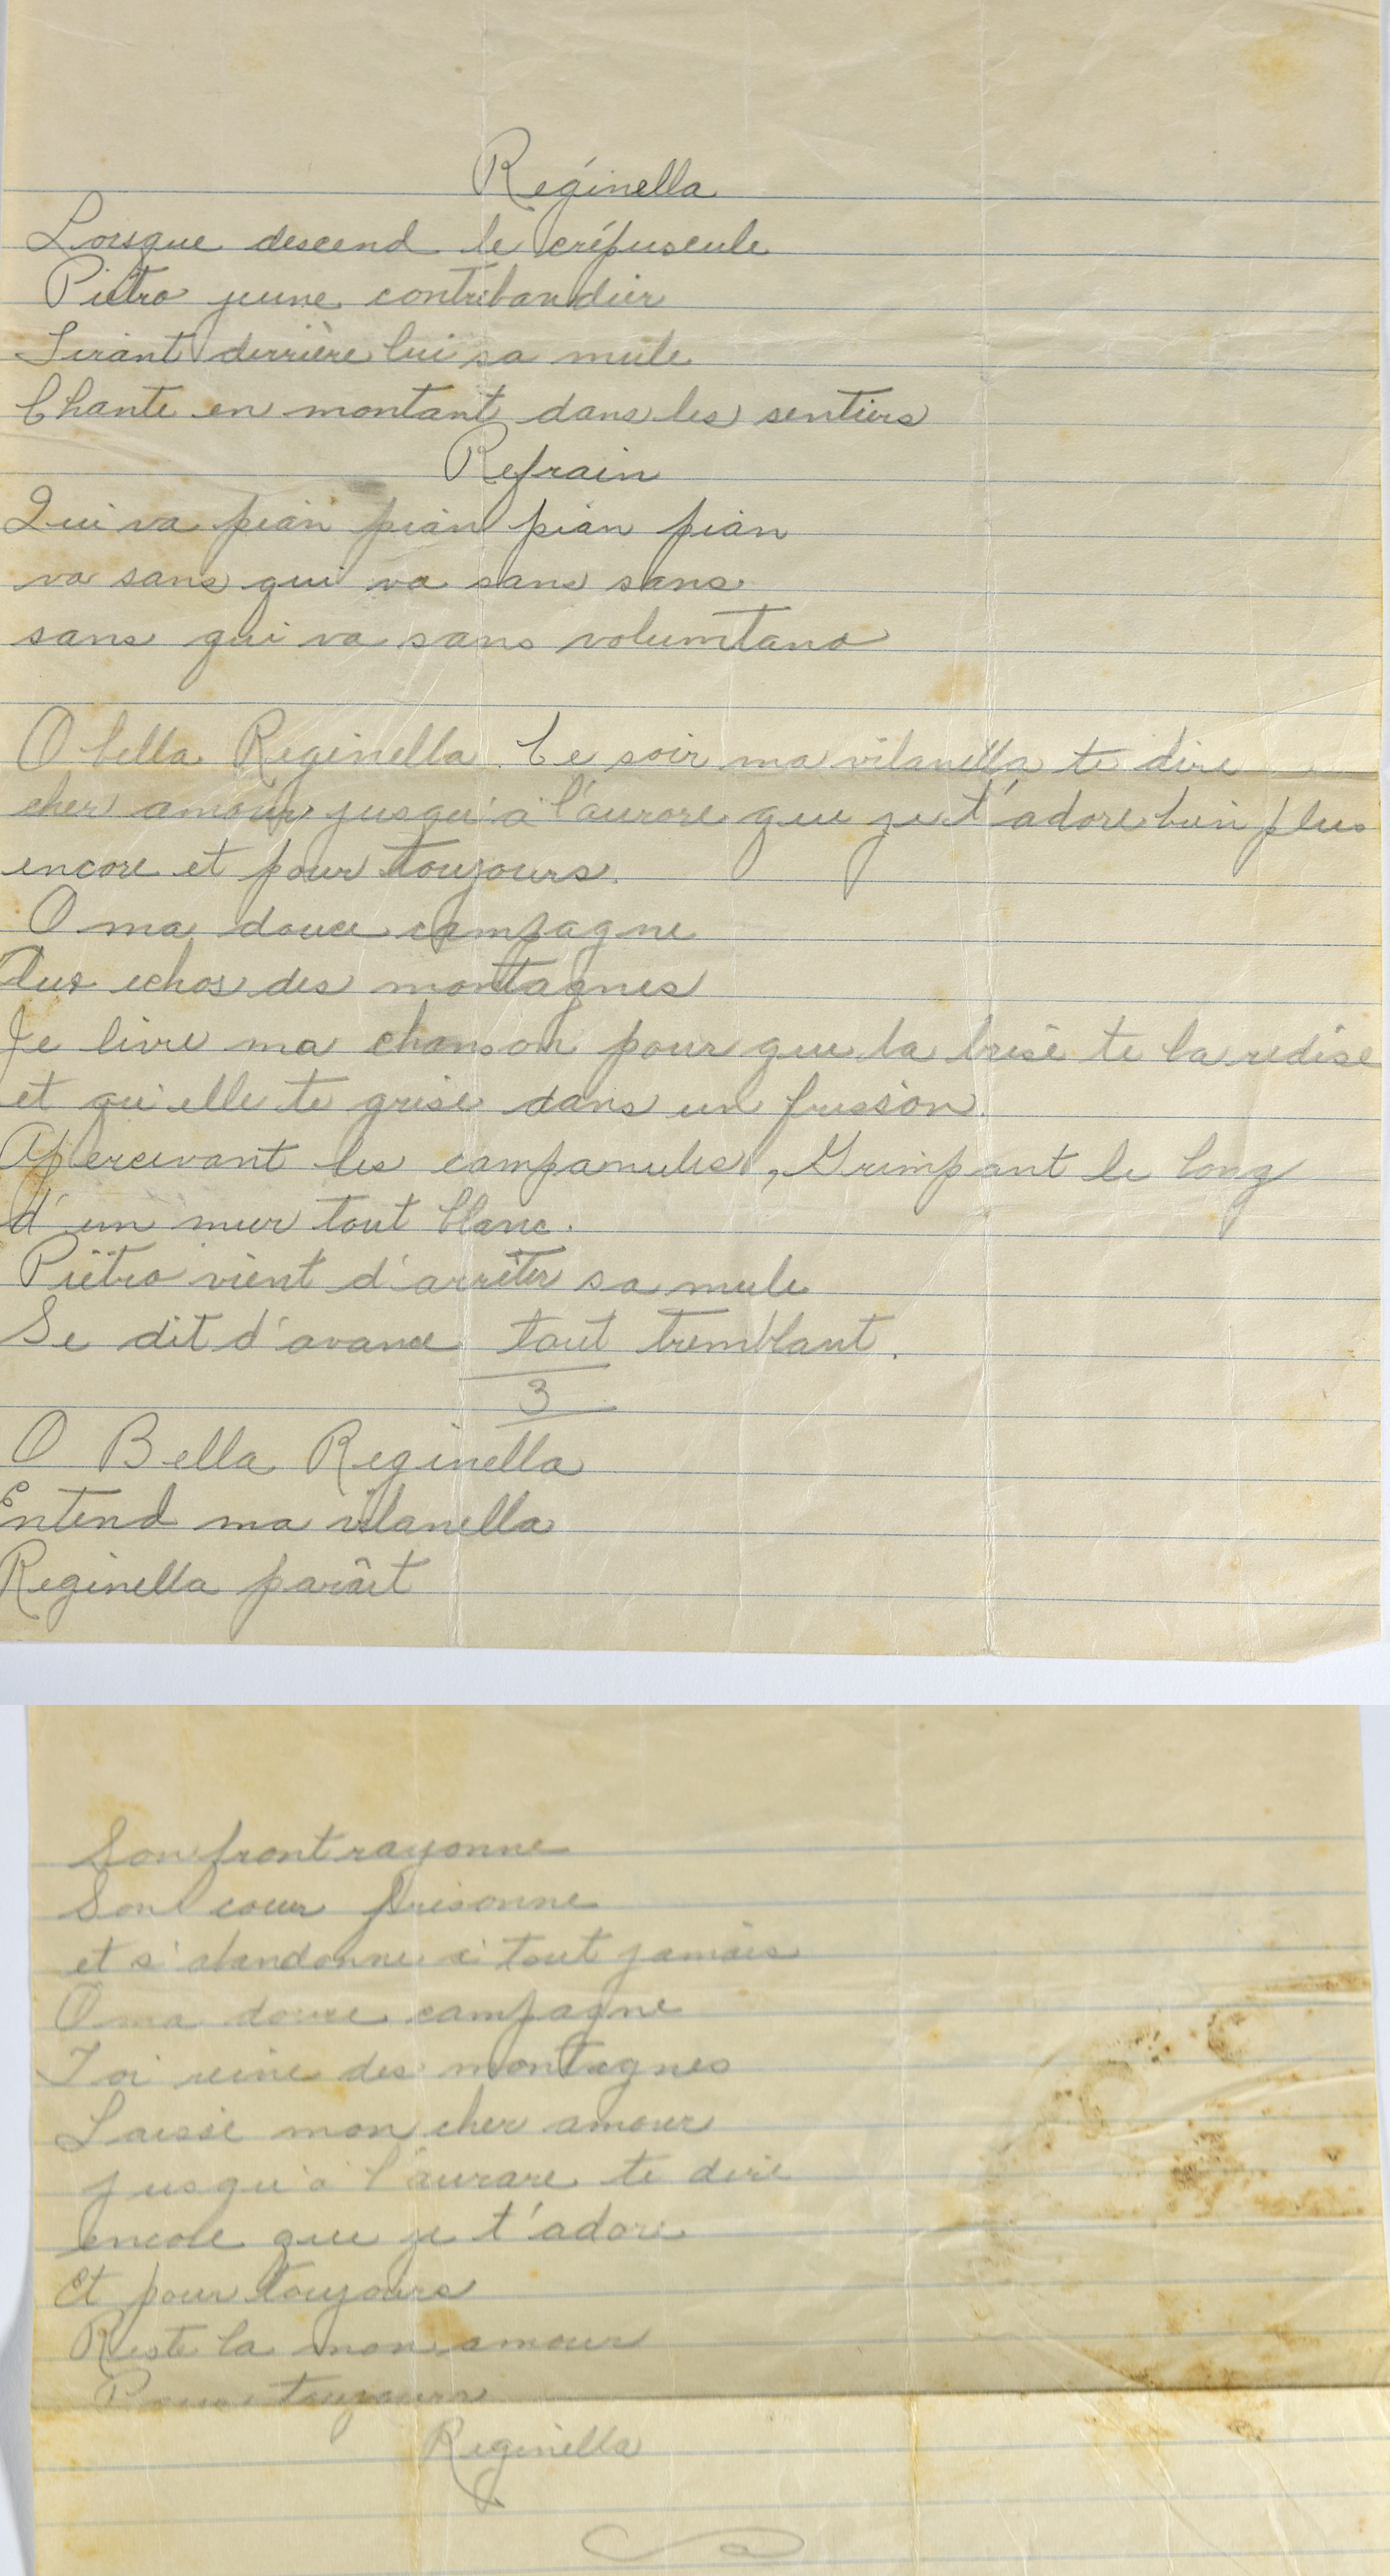 Réginella
Lorsque descend le crépuscule
Piétro jeune contribandier
Tirant derrière lui sa mule
Chante en montant dans les sentiers
Refrain
Qui va pian pian pian pian
va sans qui va sans sans
sans qui va sans volumtano
O bella Reginella. Ce soir ma vilanella te dire
cher amour jusqu'à l'aurore que je t'adore bien plus
encore et pour toujours.
O ma douce campagne
Aux echos des montagnes
Je livre ma chanson pour que la brise te la redise
et qu'elle te grise dans un frisson.
Apercevant les campanules, Grimpant le long
d'un mur tout blanc.
Piétro vient d'arrêter sa mule
Se dit d'avance tout tremblant.
3
O Bella Reginella
Entend ma vilanella
Reginella parâit
Son front rayonne
Son coeur frisonne
et s'abandonne à tout jamais
O ma douce campagne
Toi reine des montagnes
Laisse mon cher amour
jusqu'à l'aurare te dire
encore que je t'adore
Et pour toujours
Reste la mon amour
Pour toujours
Reginella